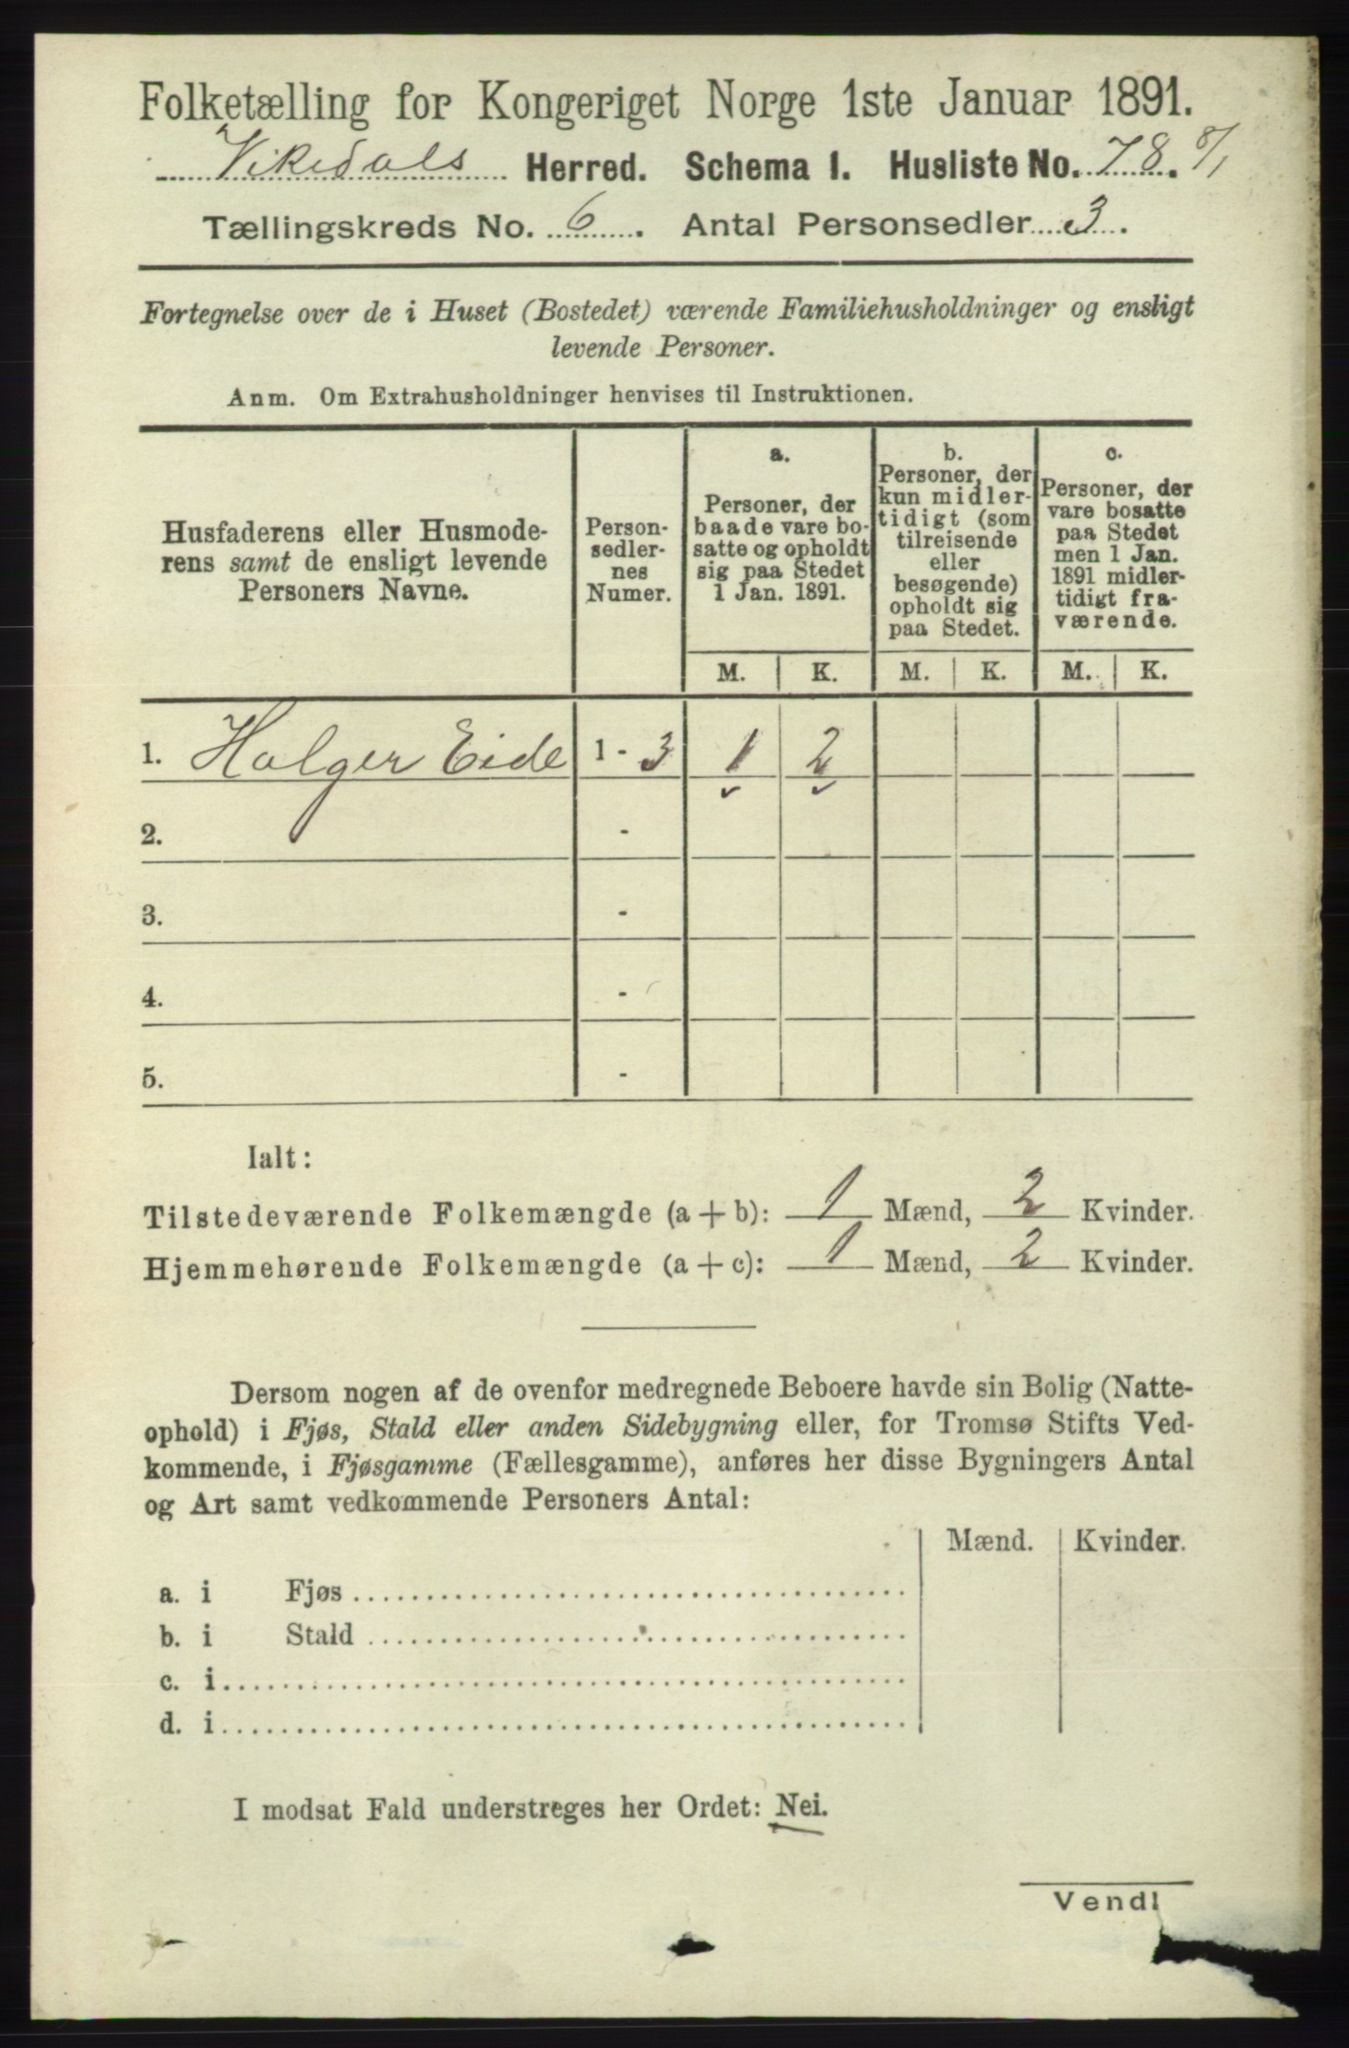 Folketælling for Kongeriget Norge 1ste Januar 1891.
Vikedals Herred. Schema 1. Husliste No. 78.
Tællingskreds No. 6. Antal Personsedler 3.
Fortegnelse over de i Huset (Bostedet) værende Familiehusholdninger og ensligt
levende Personer.
Anm. Om Extrahusholdninger henvises til Instruktionen.
Husfaderens eller Husmode-
rens samt de ensligt levende
Personers Navne.
Person-
sedler-
nes
Numer.
a.
Personer, der
baade vare bo-
satte og opholdt
sig paa Stedet
1 Jan. 1891.
b.
Personer, der
kun midler-
tidigt (som
tilreisende
eller
besøgende)
opholdt sig
paa Stedet.
c.
Personer, der
vare bosatte
paa Stedet
men 1 Jan.
1891 midler-
tidigt fra-
værende.
M. K. M. K. M. K.
1. Holger Eide 1 - 3 1 2
2. -
3. -
4. -
5. -
Ialt:
Tilstedeværende Folkemængde (a + b): 1 Mænd, 2 Kvinder.
Hjemmehørende Folkemængde (a + c): 1 Mænd, 2 Kvinder.
Dersom nogen af de ovenfor medregnede Beboere havde sin Bolig (Natte-
ophold) i Fjøs, Stald eller anden Sidebygning eller, for Tromsø Stifts Ved-
kommende, i Fjøsgamme (Fællesgamme), anføres her disse Bygningers Antal
og Art samt vedkommende Personers Antal:
Mænd. Kvinder.
a. i Fjøs
b. i Stald
c. i
d. i
I modsat Fald understreges her Ordet: Nei.